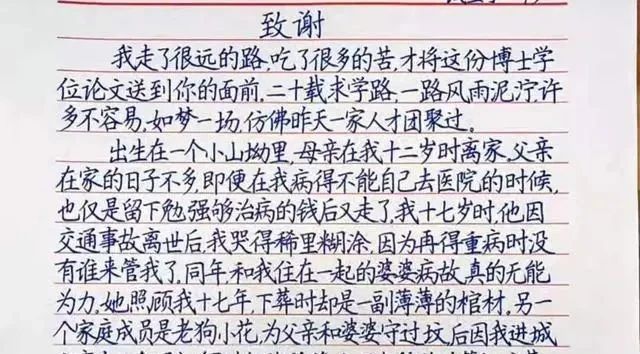 致谢
我走了很远的路,吃了很多的苦,才将这份博士学
位论文送到你的面前.二十载求学路,一路风雨泥泞,许
多不容易,如梦一场,仿佛昨天一家人才团聚过.
出生在一个小山坳里,母亲在我十二岁时离家.父亲
在家的日子不多,即便在我病得不能自己去医院的时候,
也仅是留下勉强够治病的钱后又走了,我十七岁时,他因
交通事故离世后,我哭得稀里糊涂,因为再得重病时没
有谁来管我了.同年,和我住在一起的婆婆病故,真的无能
为力.她照顾我十七年,下葬时却是一副薄薄的棺材.另一
个家庭成员是老狗小花,为父亲和婆婆守过坟,后因我进城